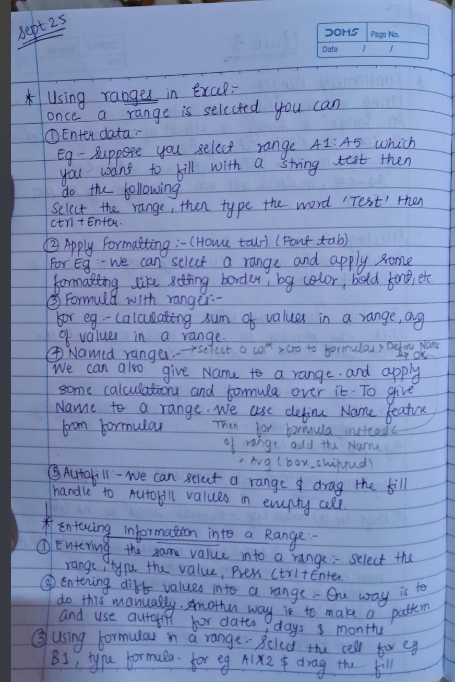 Sept 25
DOMS
Page No.
Date / /
* Using ranges in Excel:-
Once a range is selected you can
① Enter data:-
Eg - Suppose you select range A1:A5 which
you want to fill with a string test then
do the following
Select the range, then type the word 'Test' then
ctrl + Enter.
② Apply Formatting :- (Home tab) (Font tab)
For Eg - we can select a range and apply some
formatting like setting border, bg color, bold font, etc
③ Formula with ranges:-
for eg - Calculating sum of values in a range, avg
of values in a range.
④ Named ranges:- → Select a colm > Go to formulas > Define Name > OK
We can also give Name to a range. and apply
some calculations and formula over it. To give
Name to a range. We use define Name feature
from formulas Then for formula instead
of range add the Name
> Avg (box_shipped)
⑤ Autofill :- We can select a range & drag the fill
handle to Autofill values in empty cell.
* Entering Information into a Range:-
① Entering the same value into a range:- Select the
range, type the value, Press Ctrl+Enter
② Entering diff values into a range:- One way is to
do this manually. Another way is to make a pattern
and use autofill for dates, days & months
③ Using formulas in a range:- Select the cell for eg
B1, type formula. for eg A1X2 & drag the fill